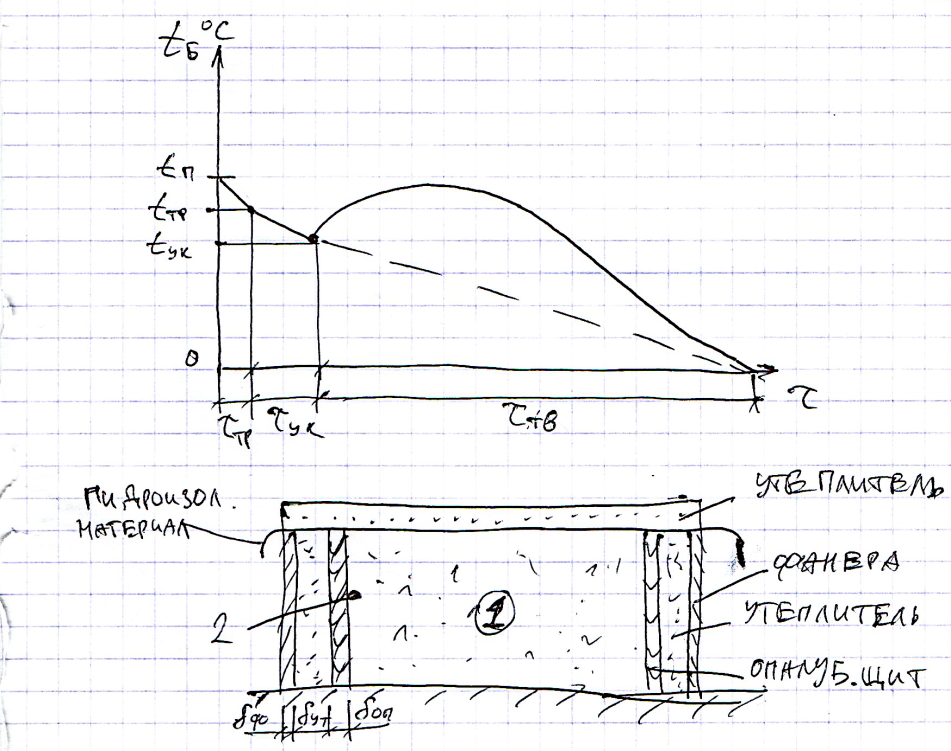 tБ °C
tп
tтр
tук
0
τтр
τук
τтв
τ
ГИДРОИЗОЛ.
МАТЕРИАЛ
УТЕПЛИТЕЛЬ
ФАНЕРА
1
УТЕПЛИТЕЛЬ
2
ОПАЛУБ.ЩИТ
δфо
δут
δоп